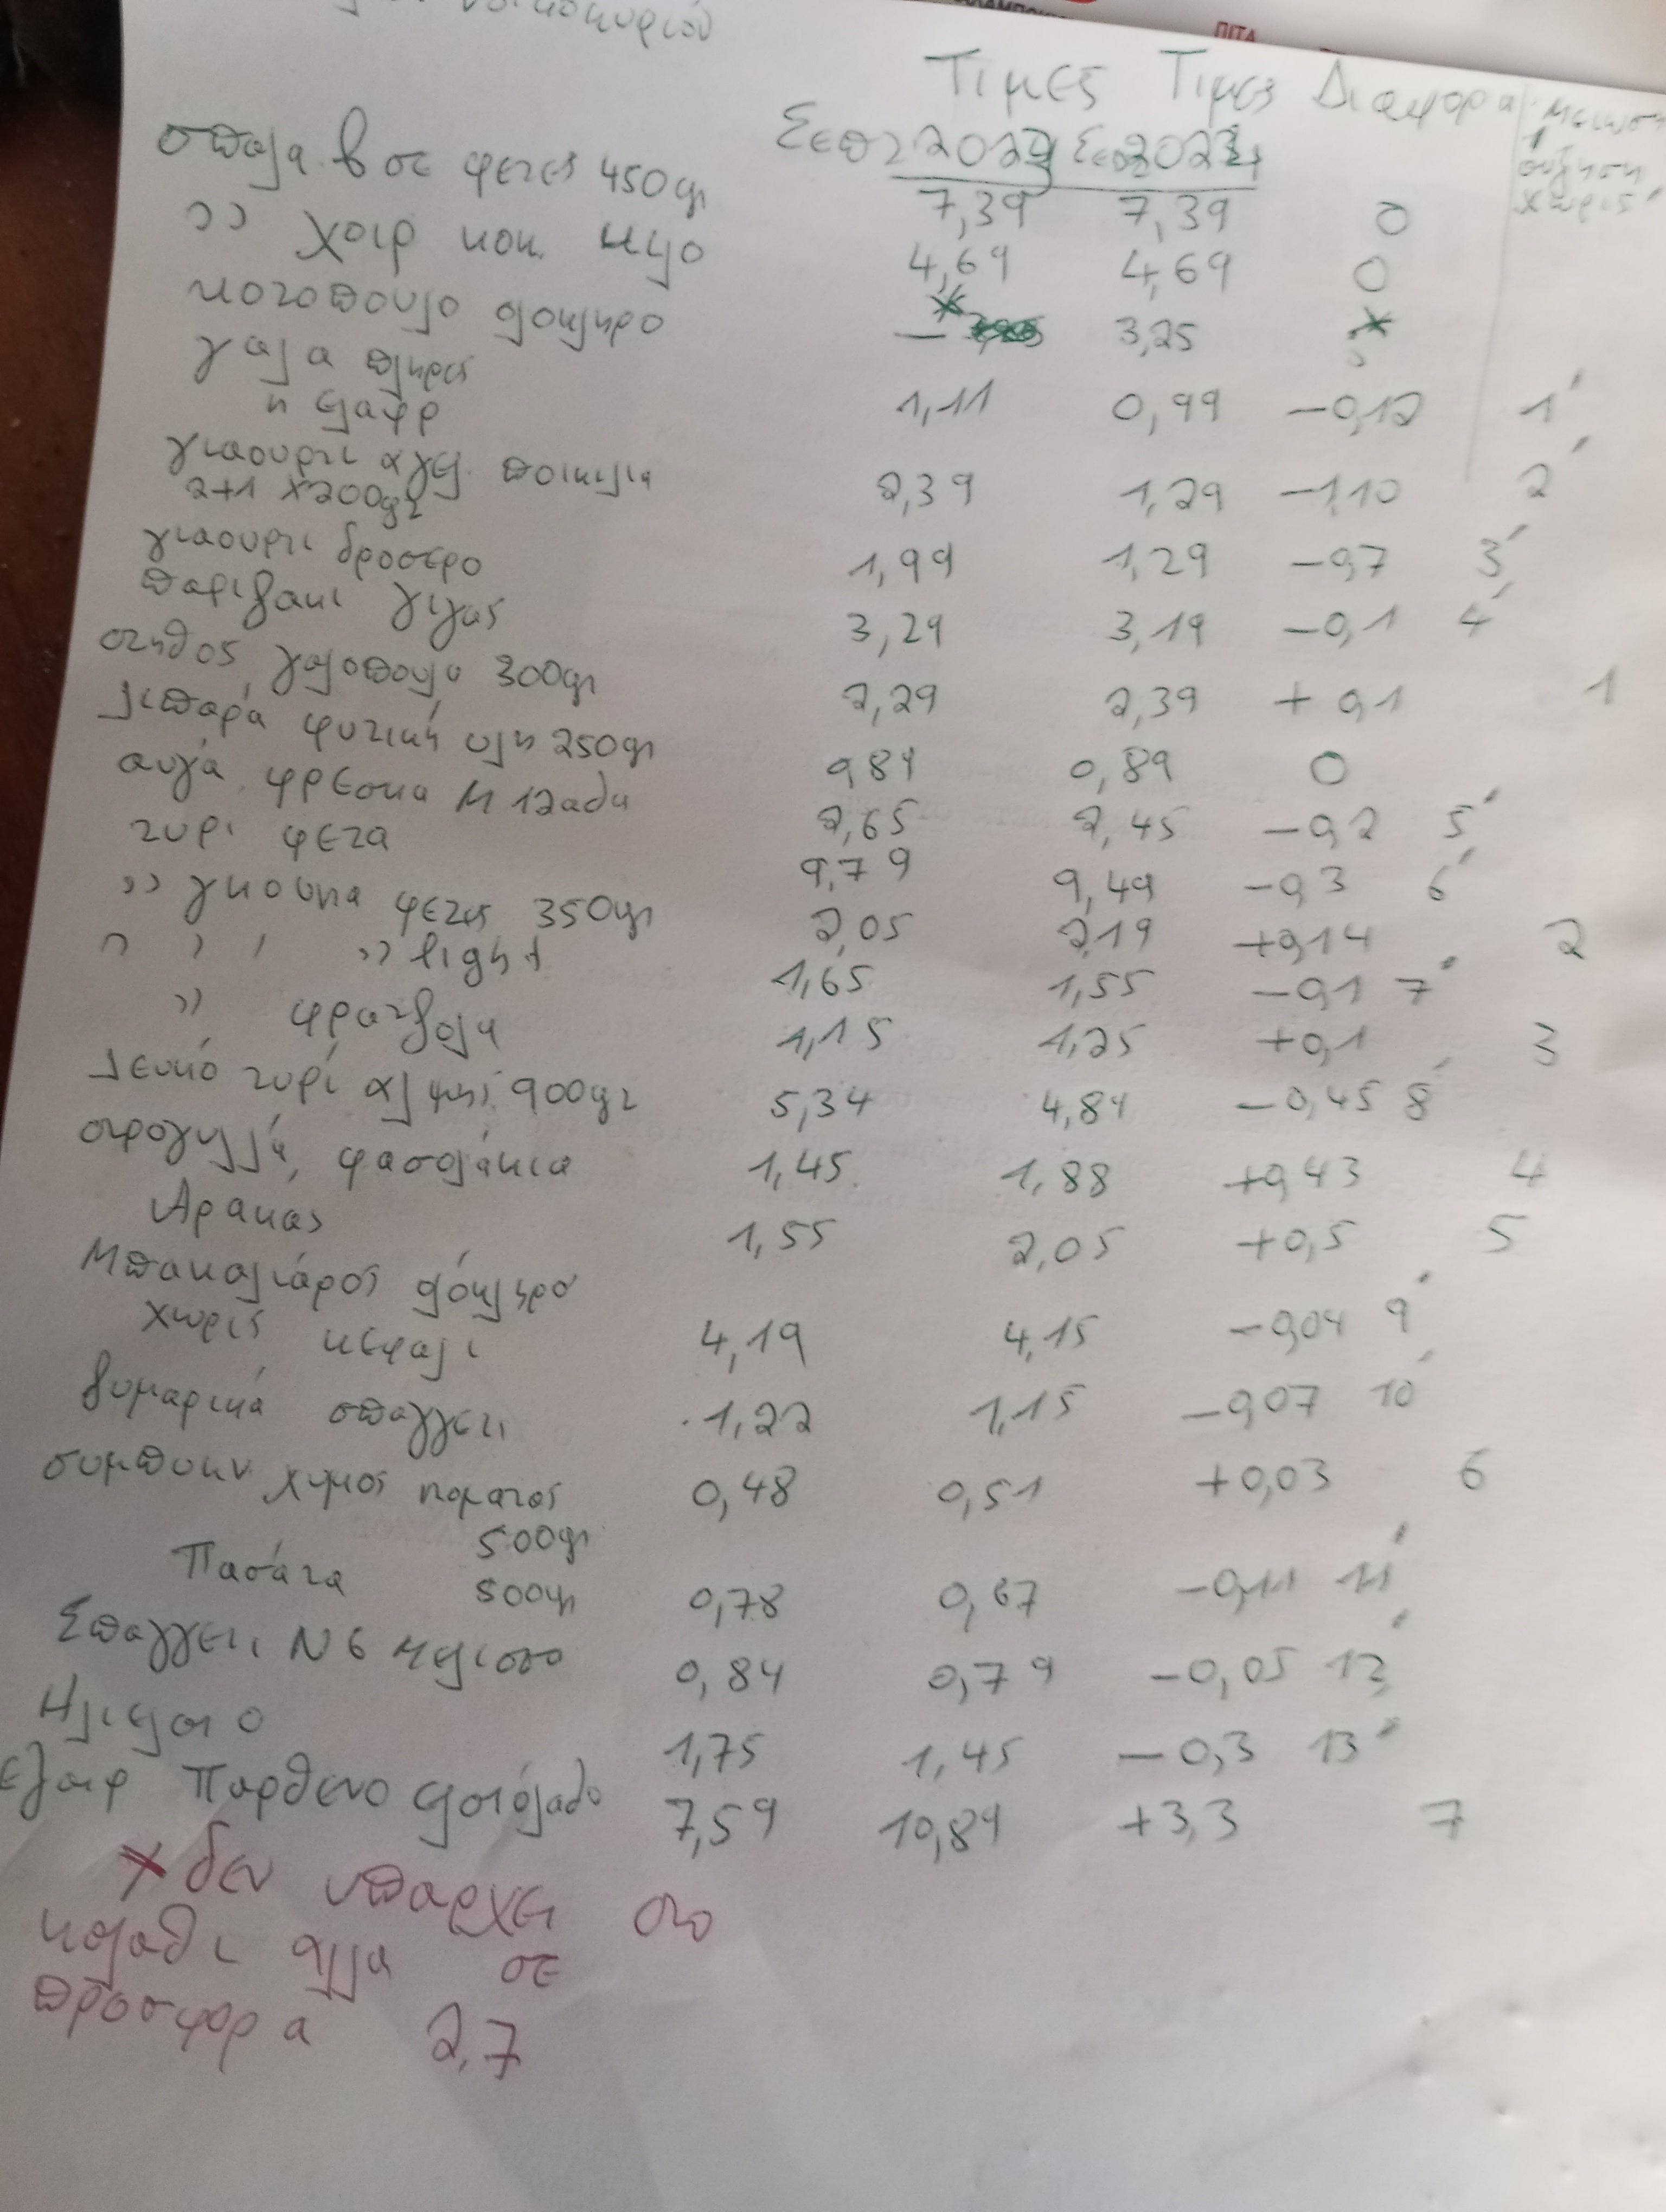 ΠΙΤΑ
Τιμες Τιμες Διαφορα μειωση
Σεπτ 2023 Σεπ 2024 αυξηση
χωρις ʹ
σπαλα βοε φετες 450gr 7,39 7,39 0
›› Χοιρ κοκ. 4,69 4,69 0
κοτοπουλο ολοκληρο — * 3,25 *
γαλα πληρες
η ελαφρ 1,11 0,99 –0,12 1ʹ
γιαουρτι αγελ. ποικιλια
2+1 x200gr 2,39 1,29 –1,10 2ʹ
γιαουρτι δροσερο 1,99 1,29 –0,7 3ʹ
παριζακι γιγας 3,29 3,19 –0,1 4ʹ
στηθος γαλοπουλα 300gr 2,29 2,39 +0,1 1
λιπαρά φυτική υλη 250gr 0,89 0,89 0
αυγά φρεσκα Μ 12αδα 2,65 2,45 –0,2 5ʹ
τυρι φετα 9,79 9,49 –0,3 6ʹ
›› γκουντα φετες 350gr 2,05 2,19 +0,14 2
›› ›› ›› light 1,65 1,55 –0,1 7ʹ
›› φραντζολα 1,15 1,25 +0,1 3
λευκό τυρί αλμης 900gr 5,34 4,89 –0,45 8ʹ
στρογγυλά φασολάκια 1,45 1,88 +0,43 4
Αρακας 1,55 2,05 +0,5 5
Μπακαλιάρος ολόκληρο
χωρις κεφαλι 4,19 4,15 –0,04 9ʹ
ζυμαρικά σπαγγετι 1,22 1,15 –0,07 10ʹ
συμπυκν. χυμος τοματας 0,48 0,51 +0,03 6
500gr
Πασάτα 500gr 0,78 0,67 –0,11 11ʹ
Σπαγγετι Ν6 0,84 0,79 –0,05 12ʹ
Ηλιελαιο 1,75 1,45 –0,3 13ʹ
εξαιρ Παρθενο ελαιόλαδο 7,59 10,89 +3,3 7
* δεν υπαρχει στο
καλαθι αλλα σε
προσφορα 2,7